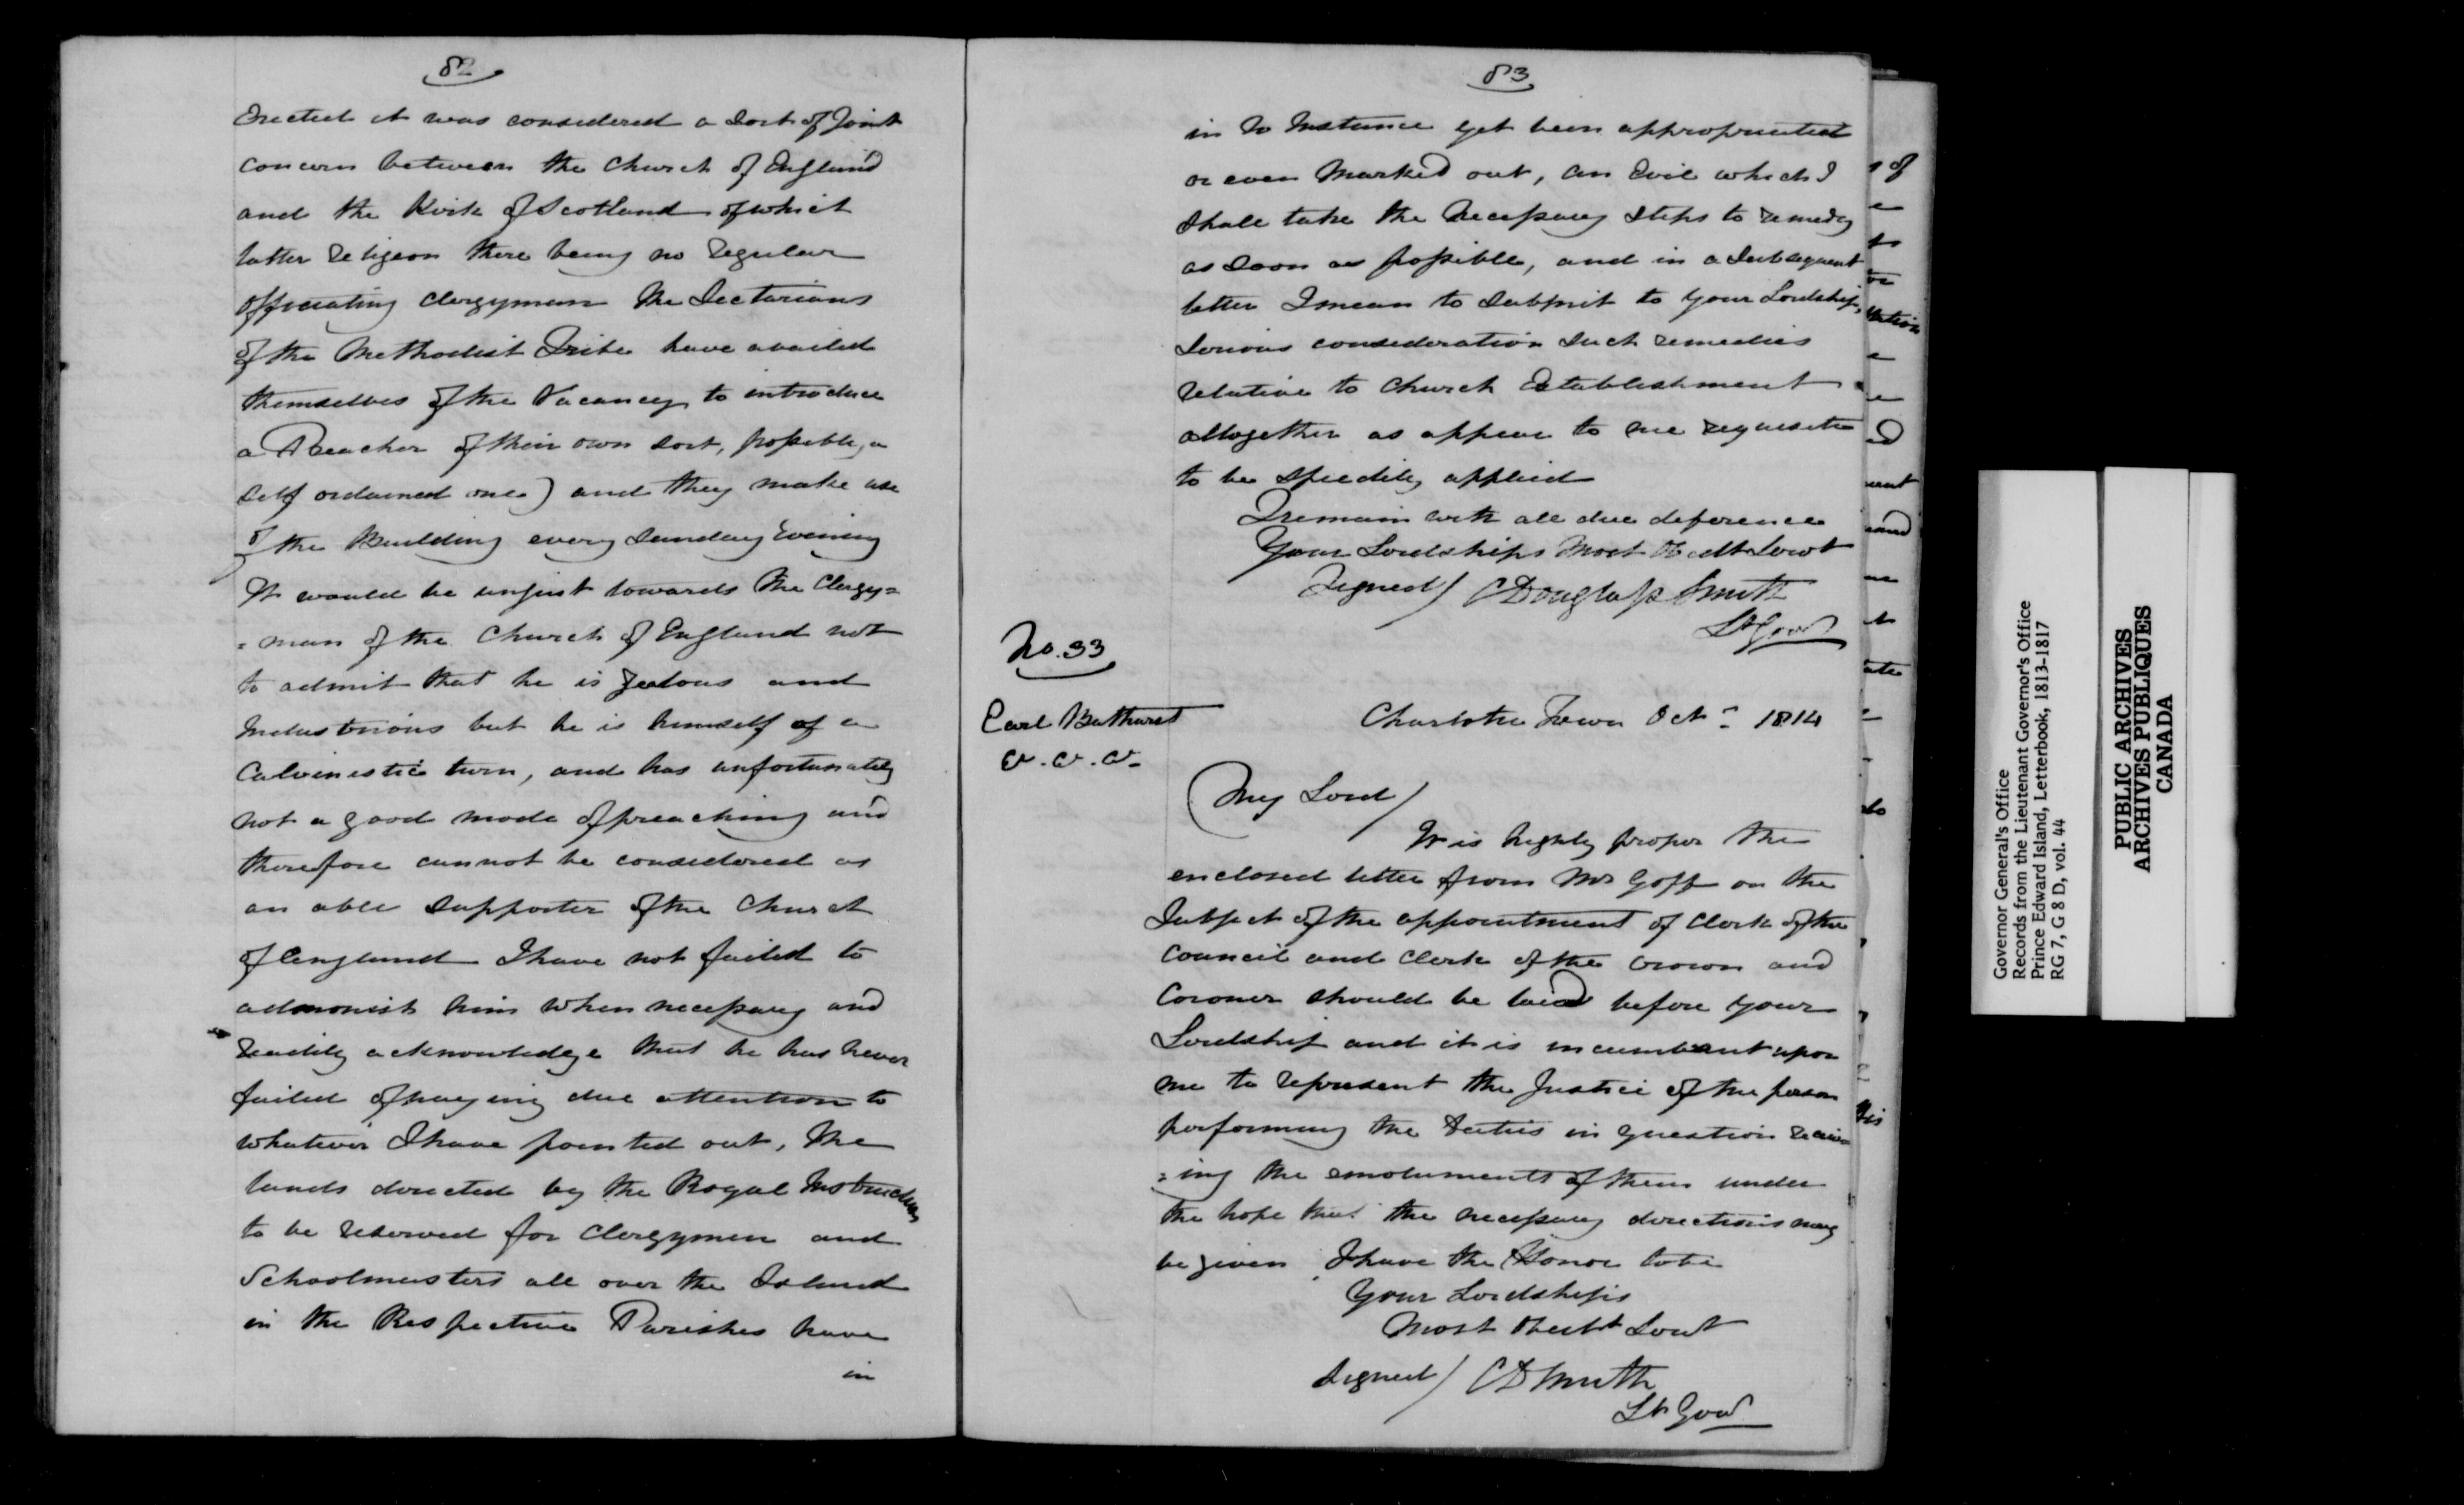 82
Erected it was considered a Sort of Joint
concern between the Church of England
and the Kirk of Scotland of which
latter Religeon there being no Regular
Officiating Clergyman the Sectarians
of the Methodist Tribe have availed
themselves of the Vacancy to introduce
a Preacher of their own sort, possibly, a
Self ordained one) and they make use
of the Building every Sunday Evening
It would be unjust towards the Clergy=
=man of the Church of England not
to admit that he is Zealous and
Industrious but he is himself of a
Calvinistic turn, and has unfortunately
not a good mode of preaching and
therefore cannot be considered as
an able Supporter of the Church
of England I have not failed to
admonish him when necessary and
readily acknowledge that he has never
failed of paying due attention to
whatever I have pointed out, the
lands directed by the Royal Instructions
to be reserved for Clergymen and
Schoolmasters all over the Island
in the Respective Parishes have
in
83
in no Instance yet been appropriated
or even Marked out, an Evil which I
Shall take the Necessary Steps to remedy
as Soon as possible, and in a Subsequent
letter I mean to Submit to your Lordships,
Serious consideration Such remedies
relative to Church Establishment
altogether as appear to me requisite
to be Speedily applied
I remain with all due deference
Your Lordships Most Obedt Servt
Signed / C Douglass Smith
Lt Govr
No. 33
Earl Bathurst
&. &. &.
Charlotte Town Octr 1814
My Lord /
It is highly proper the
enclosed letter from Mr Goff on the
Subject of the appointment of Clerk of the
Council and Clerk of the Crown and
Coroner should be laid before your
Lordship and it is incumbent upon
me to represent the Justice of the person
performing the Duties in question receiv=
=ing the emoluments of them under
the hope that the necessary directions may
be given I have the Honor to be
Your Lordships
Most Obedt Servt
Signed / C D Smith
Lt Govr
Governor General's Office
Records from the Lieutenant Governor's Office
Prince Edward Island, Letterbook, 1813-1817
RG 7, G 8 D, vol. 44
PUBLIC ARCHIVES
ARCHIVES PUBLIQUES
CANADA